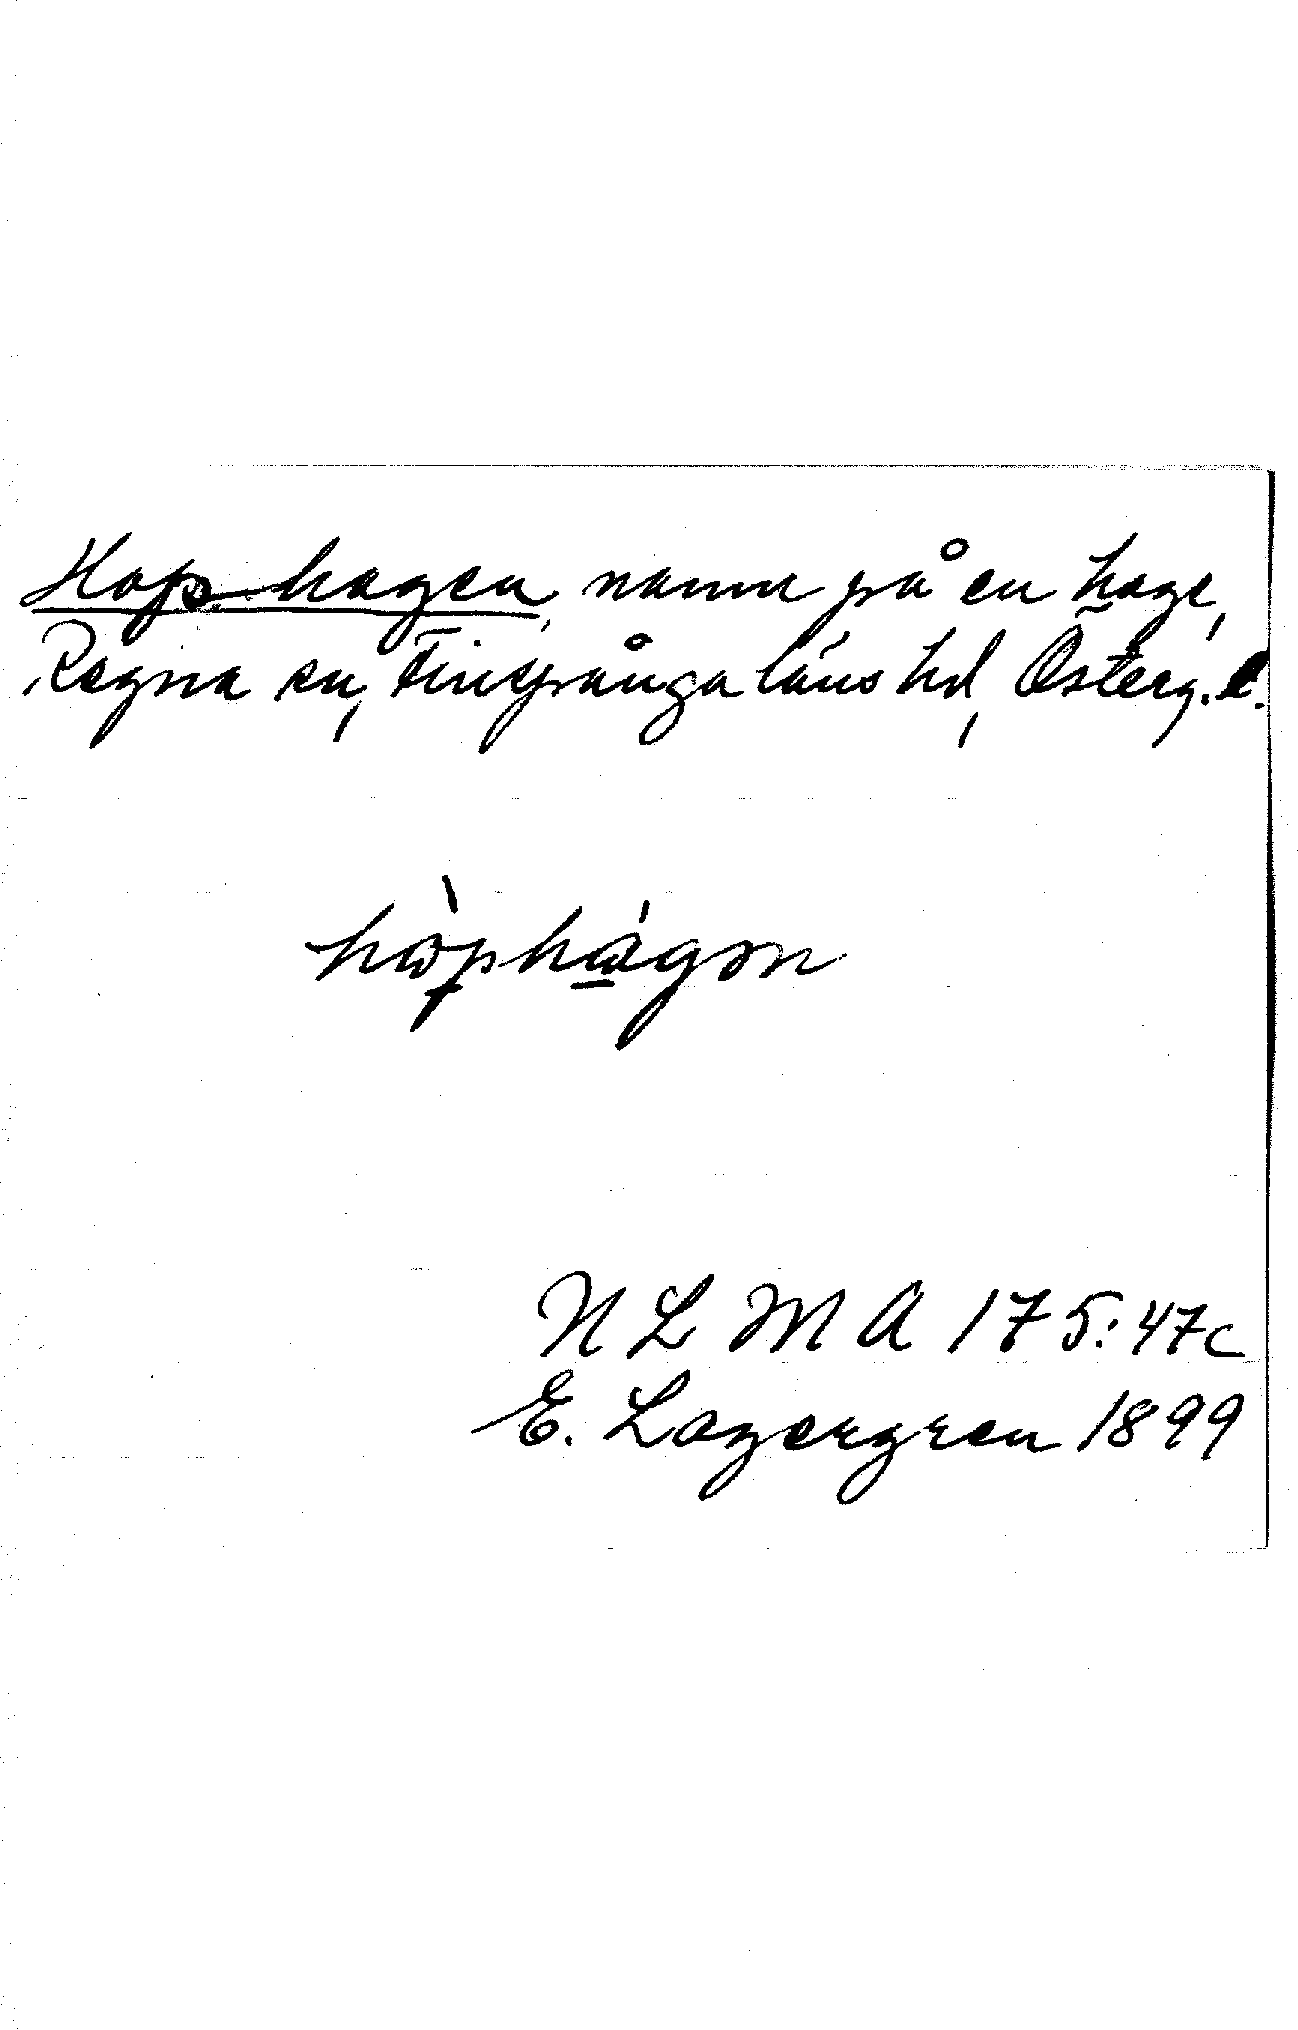 Hop-hagen, namn på en hage,
Regna sn, Finspånga läns hd, Österg. l.
hòphágən
NLM A 175:47c
E. Lagergren 1899